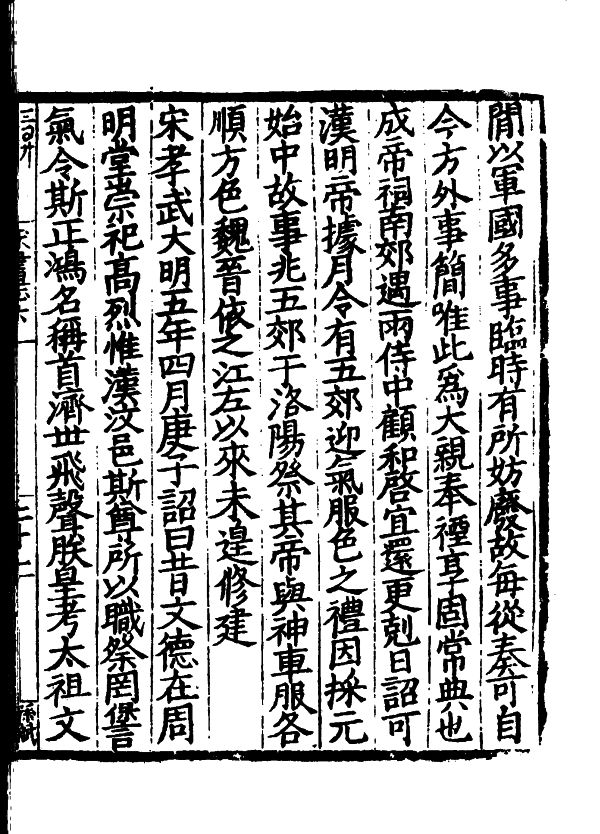 閒以軍國多事臨時有所妨廢故每從奏可自
今方外事簡唯此爲大親奉禋享固常典也
成帝祠南郊遇雨侍中顧和啓宜還更剋日詔可
漢明帝據月令有五郊迎氣服色之禮因採元
始中故事兆五郊于洛陽祭其帝與神車服各
順方色魏晉依之江左以來未遑脩建
宋孝武大明五年四月庚子詔曰昔文德在周
明堂崇祀髙烈惟漢汶邑斯尊所以職祭罔諐
氣令斯正鴻名稱首濟世飛聲朕皇考太祖文
二十二